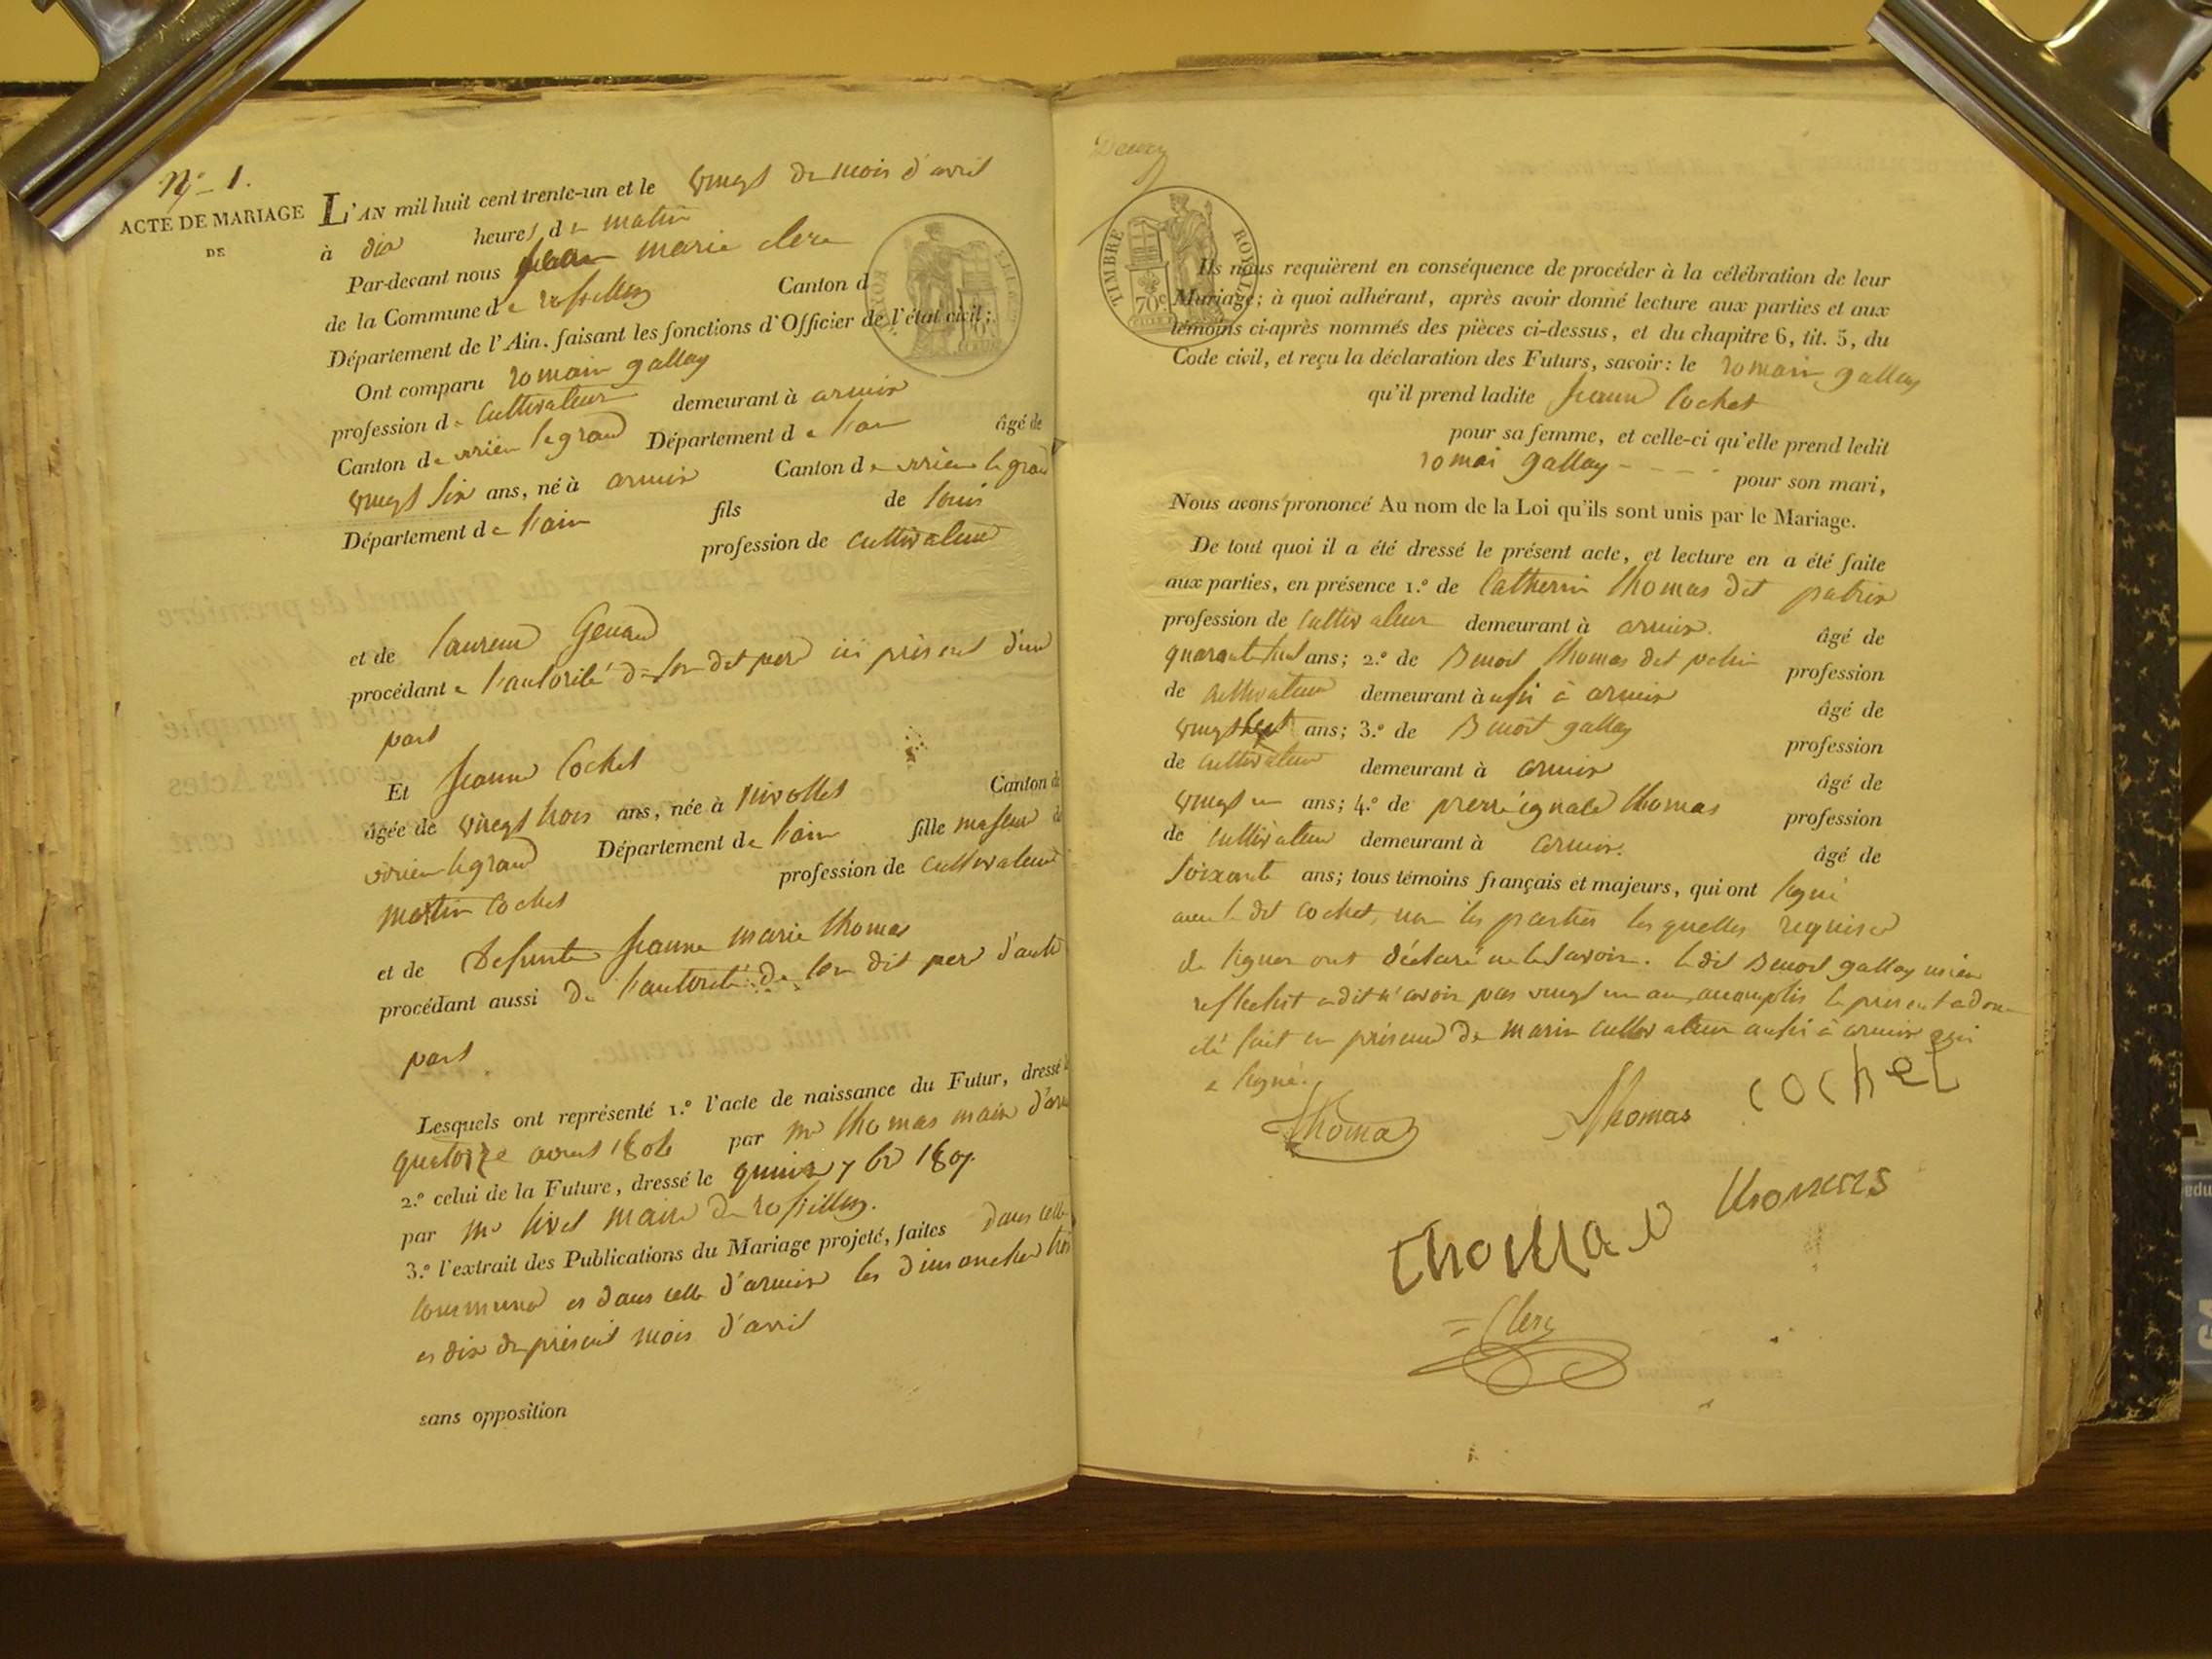 N.° 1.
ACTE DE MARIAGE
DE
L'AN mil huit cent trente-un et le vingt du mois d'avril
à dix heures du matin
Par-devant nous jean marie clerc
de la Commune de rossillon Canton d
Département de l'Ain, faisant les fonctions d'Officier de l'état civil;
Ont comparu romain gallay
profession de Cultivateur demeurant à armix
Canton de virieu le grand Département de l'ain âgé de
vingt six ans, né à armix Canton de virieu le grand
Département de l'ain fils de louis
profession de cultivateur
et de laurence
procédant de l'autorité de son dit pere ici présent d'une
part
Et jeanne Cochet
âgée de vingt trois ans, née à Canton de
virieu le grand Département de l'ain fille majeure de
martin Cochet profession de cultivateur
et de Defunte jeanne marie thomas
procédant aussi de l'autorité de son dit pere d'autre
part.
Lesquels ont représenté 1.° l'acte de naissance du Futur, dressé le
quatorze 180 par mr thomas maire
2.° celui de la Future, dressé le quinze 7 bre 1807.
par mr maire de rossillon.
3.° l'extrait des Publications du Mariage projeté, faites dans cette
commune et dans celle d'armix les dimanches trois
et dix du présent mois d'avril
sans opposition
TIMBRE ROYAL
70c
Ils nous requièrent en conséquence de procéder à la célébration de leur
Mariage; à quoi adhérant, après avoir donné lecture aux parties et aux
témoins ci-après nommés des pièces ci-dessus, et du chapitre 6, tit. 5, du
Code civil, et reçu la déclaration des Futurs, savoir: le romain gallay
qu'il prend ladite jeanne Cochet
pour sa femme, et celle-ci qu'elle prend ledit
romai gallay - - - - pour son mari,
Nous avons prononcé Au nom de la Loi qu'ils sont unis par le Mariage.
De tout quoi il a été dressé le présent acte, et lecture en a été faite
aux parties, en présence 1.° de Catherin thomas dit
profession de cultivateur demeurant à armix. âgé de
quarante huit ans; 2.° de Benoit thomas dit profession
de cultivateur demeurant aussi à armix âgé de
vingt ans; 3.° de Benoit gallay profession
de cultivateur demeurant à armix âgé de
vingt un ans; 4.° de pierre ignace thomas profession
de cultivateur demeurant à armix. âgé de
soixante ans; tous témoins français et majeurs, qui ont signé
avec le dit cochet, non les parties lesquelles requises
de signer ont déclaré ne le savoir. le dit Benoit gallay mieux
reflechit a dit n'avoir pas vingt un ans accomplis le present a donc
été fait en présence de marin cultivateur aussi à armix qui
a signé.
Thomas Thomas cochet
thomas thomas
Clerc